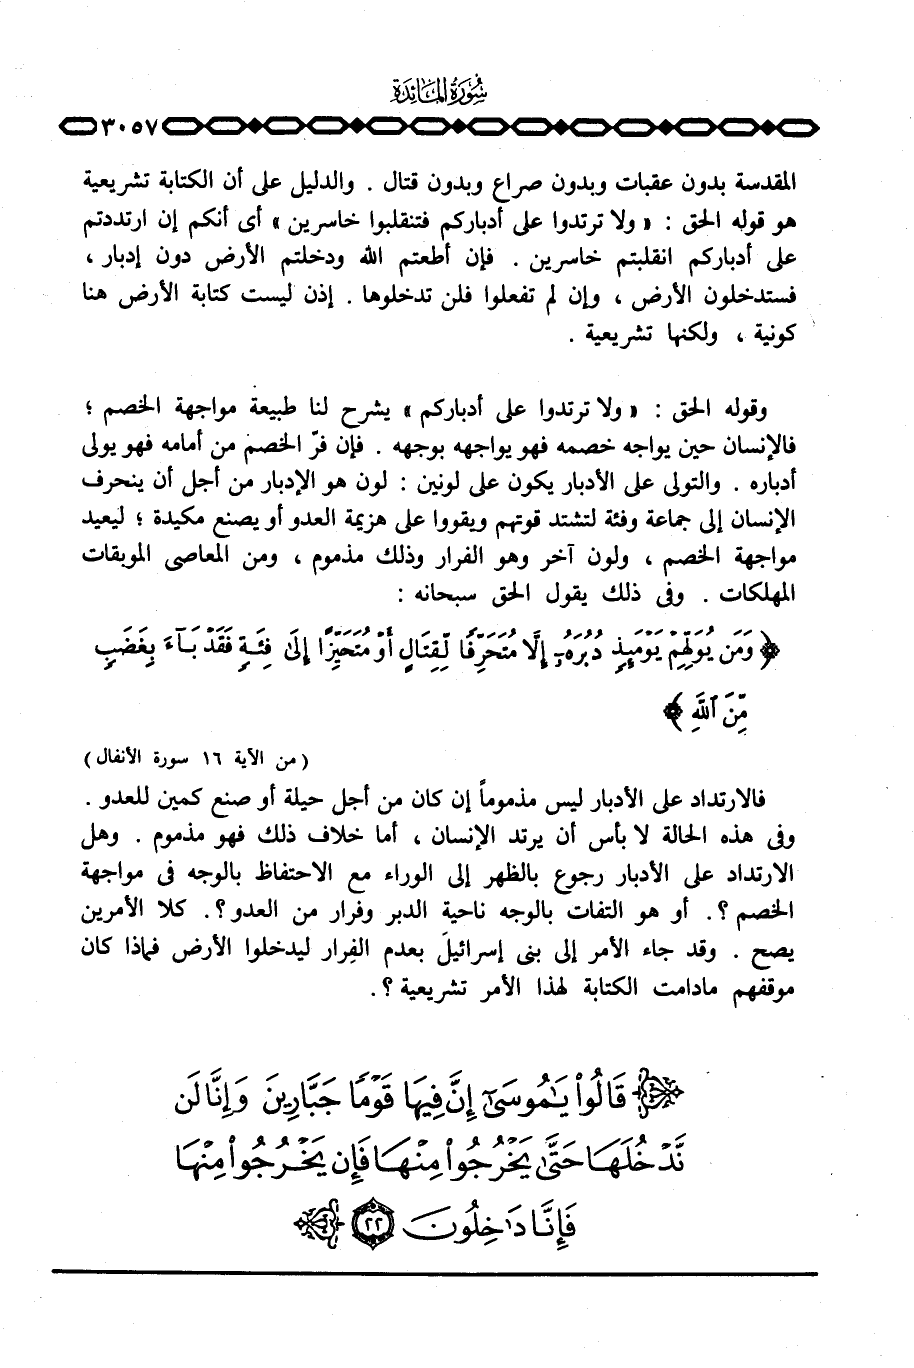 سُورَةُ المَائدَة
٣٠٥٧
المقدسة بدون عقبات وبدون صراع وبدون قتال . والدليل على أن الكتابة تشريعية
هو قوله الحق : « ولا ترتدوا على أدباركم فتنقلبوا خاسرين » أى أنكم إن ارتددتم
على أدباركم انقلبتم خاسرين . فإن أطعتم الله ودخلتم الأرض دون إدبار ،
فستدخلون الأرض ، وإن لم تفعلوا فلن تدخلوها . إذن ليست كتابة الأرض هنا
كونية ، ولكنها تشريعية .
وقوله الحق : « ولا ترتدوا على أدباركم » يشرح لنا طبيعة مواجهة الخصم ؛
فالإنسان حين يواجه خصمه فهو يواجهه بوجهه . فإن فرّ الخصم من أمامه فهو يولى
أدباره . والتولى على الأدبار يكون على لونين : لون هو الإدبار من أجل أن ينحرف
الإنسان إلى جماعة وفئة لتشتد قوتهم ويقووا على هزيمة العدو أو يصنع مكيدة ؛ ليعيد
مواجهة الخصم ، ولون آخر وهو الفرار وذلك مذموم ، ومن المعاصى الموبقات
المهلكات . وفى ذلك يقول الحق سبحانه :
﴿ وَمَن يُوَلِّهِمْ يَوْمَئِذٍ دُبُرَهُۥٓ إِلَّا مُتَحَرِّفًا لِّقِتَالٍ أَوْ مُتَحَيِّزًا إِلَىٰ فِئَةٍ فَقَدْ بَآءَ بِغَضَبٍ
مِّنَ ٱللَّهِ ﴾
( من الآية ١٦ سورة الأنفال )
فالارتداد على الأدبار ليس مذموماً إن كان من أجل حيلة أو صنع كمين للعدو .
وفى هذه الحالة لا بأس أن يرتد الإنسان ، أما خلاف ذلك فهو مذموم . وهل
الارتداد على الأدبار رجوع بالظهر إلى الوراء مع الاحتفاظ بالوجه فى مواجهة
الخصم ؟. أو هو التفات بالوجه ناحية الدبر وفرار من العدو ؟. كلا الأمرين
يصح . وقد جاء الأمر إلى بنى إسرائيلَ بعدم الفِرار ليدخلوا الأرض فماذا كان
موقفهم مادامت الكتابة لهذا الأمر تشريعية ؟.
﴿ قَالُوا۟ يَٰمُوسَىٰٓ إِنَّ فِيهَا قَوْمًا جَبَّارِينَ وَإِنَّا لَن
نَّدْخُلَهَا حَتَّىٰ يَخْرُجُوا۟ مِنْهَا فَإِن يَخْرُجُوا۟ مِنْهَا
فَإِنَّا دَٰخِلُونَ ٢٢ ﴾